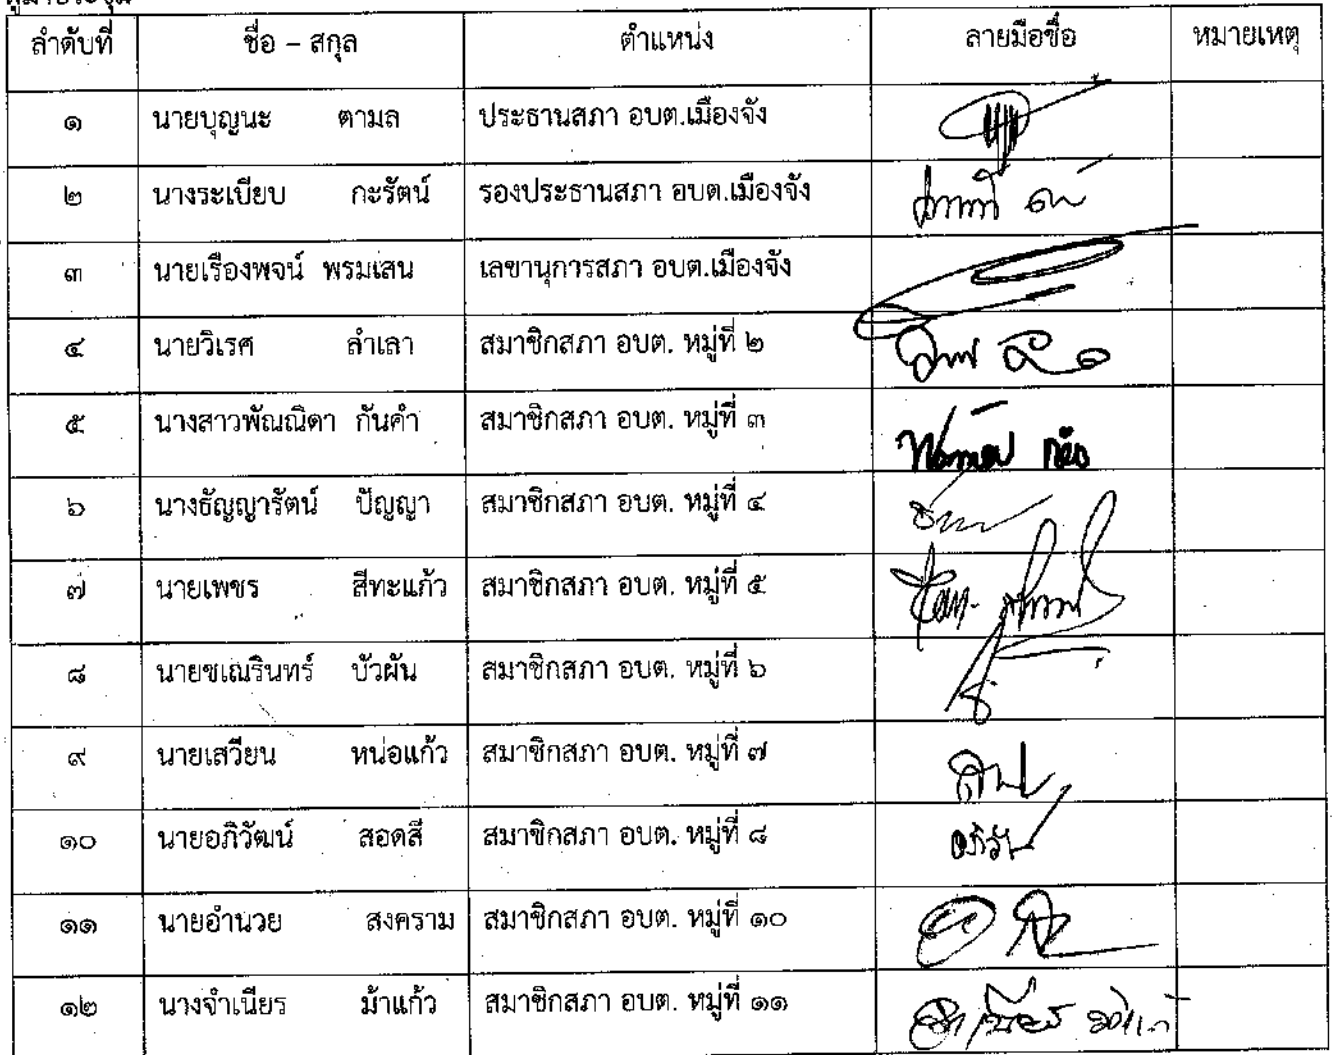 ผู้มาประชุม
ลำดับที่ ชื่อ – สกุล ตำแหน่ง ลายมือชื่อ หมายเหตุ
๑ นายบุญนะ ตามล ประธานสภา อบต.เมืองจัง
๒ นางระเบียบ กะรัตน์ รองประธานสภา อบต.เมืองจัง
๓ นายเรืองพจน์ พรมเสน เลขานุการสภา อบต.เมืองจัง
๔ นายวิเรศ ลำเลา สมาชิกสภา อบต. หมู่ที่ ๒
๕ นางสาวพัณณิตา กันคำ สมาชิกสภา อบต. หมู่ที่ ๓
๖ นางธัญญารัตน์ ปัญญา สมาชิกสภา อบต. หมู่ที่ ๔
๗ นายเพชร สีทะแก้ว สมาชิกสภา อบต. หมู่ที่ ๕
๘ นายชเณรินทร์ บัวผัน สมาชิกสภา อบต. หมู่ที่ ๖
๙ นายเสวียน หน่อแก้ว สมาชิกสภา อบต. หมู่ที่ ๗
๑๐ นายอภิวัฒน์ สอดสี สมาชิกสภา อบต. หมู่ที่ ๘
๑๑ นายอำนวย สงคราม สมาชิกสภา อบต. หมู่ที่ ๑๐
๑๒ นางจำเนียร ม้าแก้ว สมาชิกสภา อบต. หมู่ที่ ๑๑